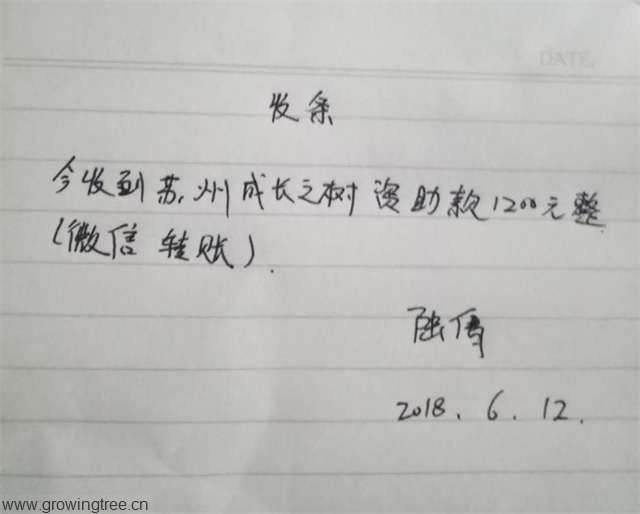 DATE.
收条
今收到苏州成长之树资助款1200元整
(微信转账).
陆倩
2018.6.12.
www.growingtree.cn